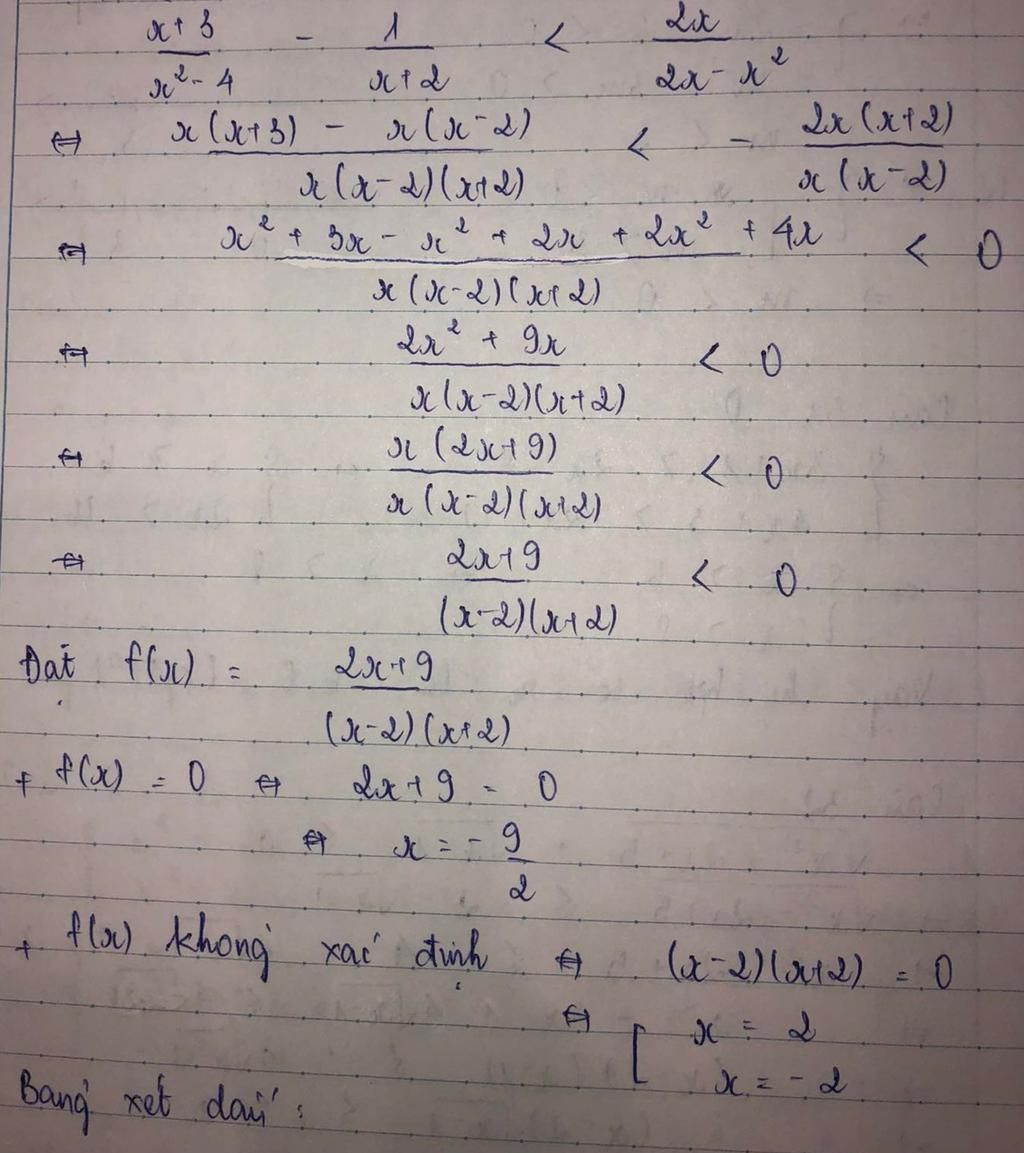 x+3/x²-4 - 1/x+2 < 2x/2x-x²
⇔ x(x+3) - x(x-2)/x(x-2)(x+2) < - 2x(x+2)/x(x-2)
⇔ x² + 3x - x² + 2x + 2x² + 4x/x(x-2)(x+2) < 0
⇔ 2x² + 9x/x(x-2)(x+2) < 0
⇔ x(2x+9)/x(x-2)(x+2) < 0
⇔ 2x+9/(x-2)(x+2) < 0
Đặt f(x) = 2x+9/(x-2)(x+2)
+ f(x) = 0 ⇔ 2x+9 = 0
⇔ x = - 9/2
+ f(x) không xác định ⇔ (x-2)(x+2) = 0
⇔ [ x = 2
x = -2
Bảng xét dấu :